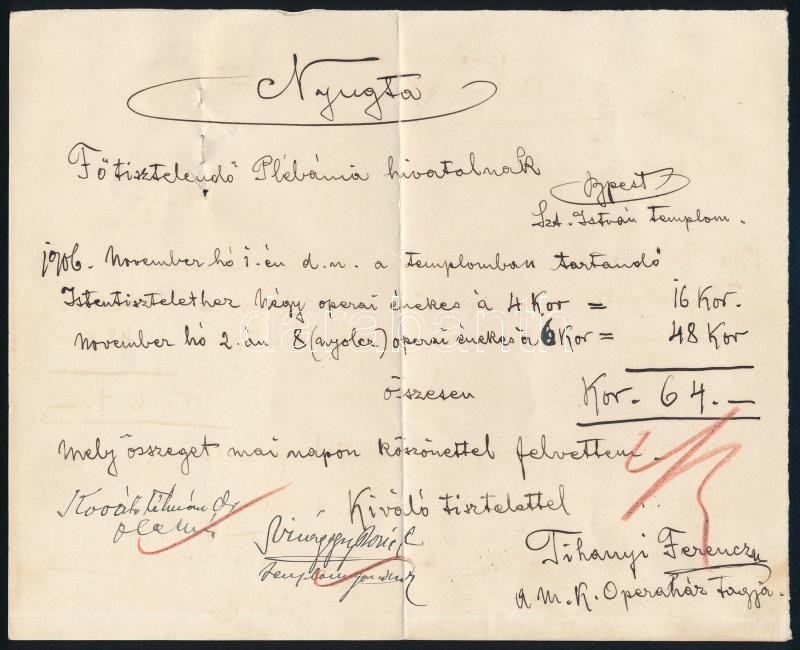 Nyugta
Főtisztelendő Plébánia hivatalnak
Bpest
Szt. István templom.
1906. November hó 1.-én d.n. a templomban tartandó
Istentisztelethez Négy operai énekes à 4 Kor = 16 Kor.
November hó 2.-án 8 (nyolcz) operai énekes à 6 Kor = 48 Kor
összesen Kor. 64.—
Mely összeget mai napon köszönettel felvettem.
Kiváló tisztelettel
Kováts Kálmán
Tihanyi Ferencz
a M. K. Operaház tagja.
darabanth